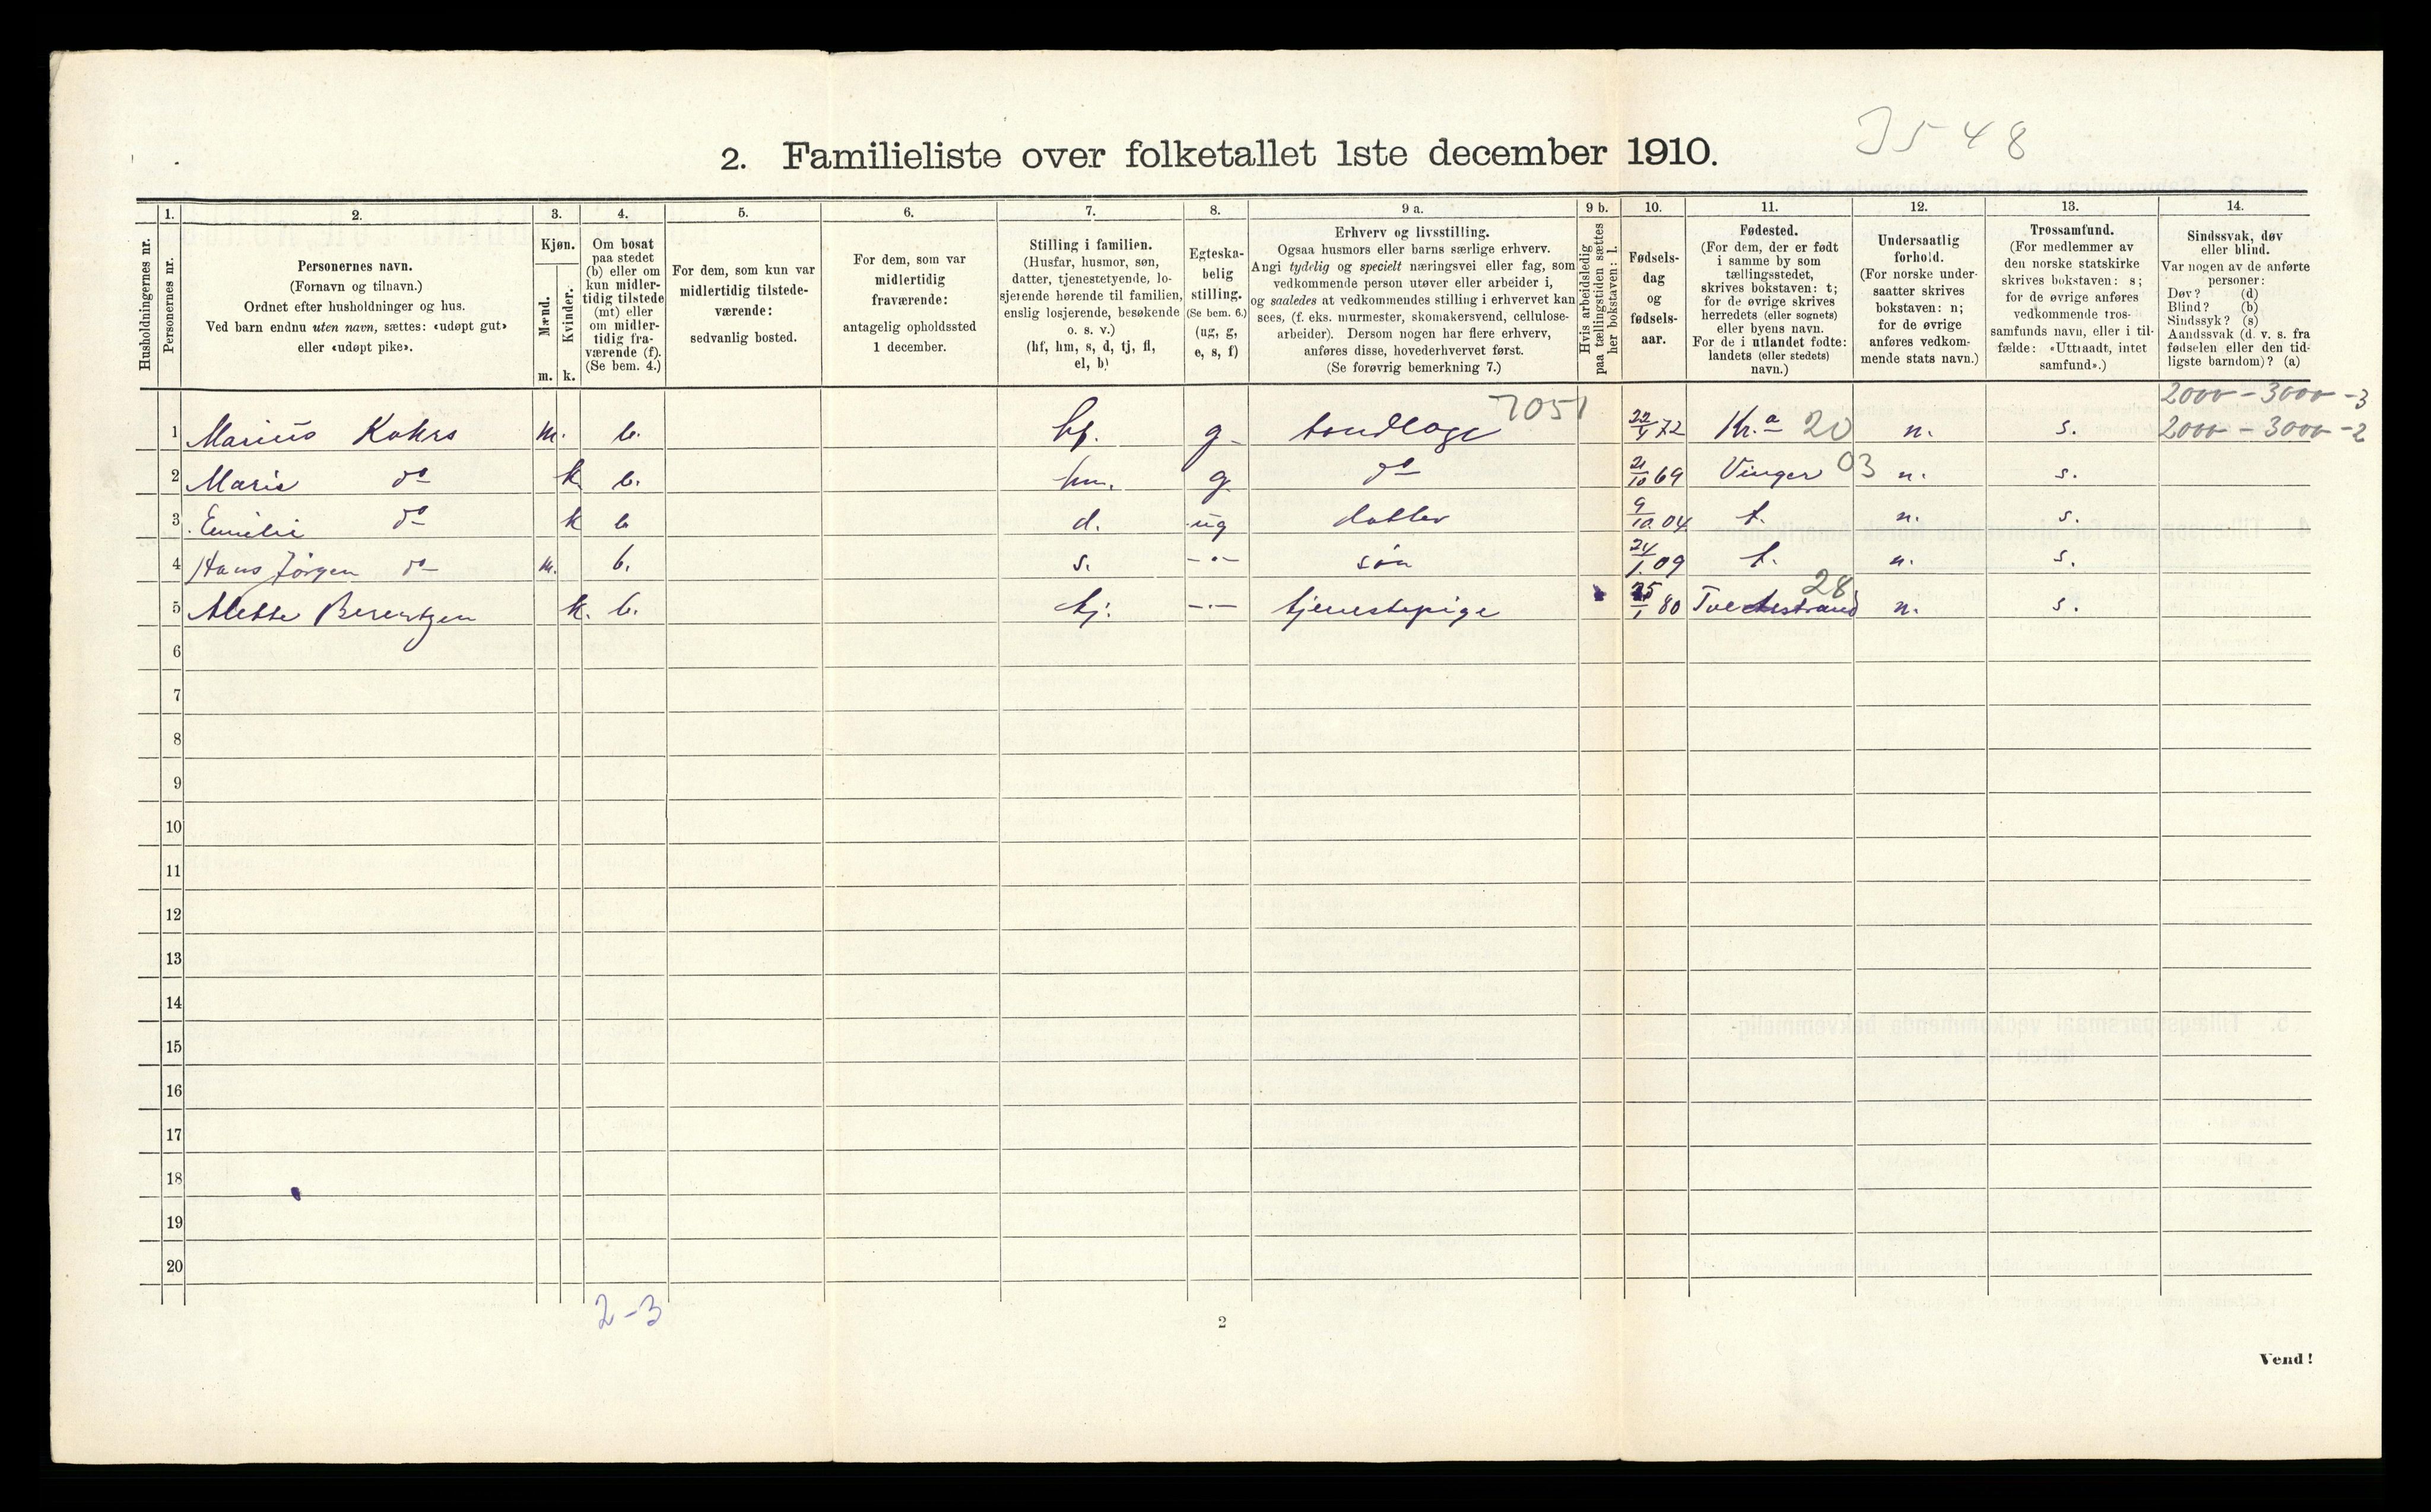 J 5 4 8
2. Familieliste over folketallet 1ste december 1910.
Husholdningernes nr.
1. Personernes nr.
2. Personernes navn. (Fornavn og tilnavn.) Ordnet efter husholdninger og hus. Ved barn endnu uten navn, sættes: «udøpt gut» eller «udøpt pike».
3. Kjøn. Mænd. m. Kvinder. k.
4. Om bosat paa stedet (b) eller om kun midler-tidig tilstede (mt) eller om midler-tidig fra-værende (f). (Se bem. 4.)
5. For dem, som kun var midlertidig tilstede-værende: sedvanlig bosted.
6. For dem, som var midlertidig fraværende: antagelig opholdssted 1 december.
7. Stilling i familien. (Husfar, husmor, søn, datter, tjenestetyende, lo-sjerende hørende til familien, enslig losjerende, besøkende o. s. v.) (hf, hm, s, d, tj, fl, el, b)
8. Egteska-belig stilling. (Se bem. 6.) (ug, g, e, s, f)
9 a. Erhverv og livsstilling. Ogsaa husmors eller barns særlige erhverv. Angi tydelig og specielt næringsvei eller fag, som vedkommende person utøver eller arbeider i, og saaledes at vedkommendes stilling i erhvervet kan sees, (f. eks. murmester, skomakersvend, cellulose-arbeider). Dersom nogen har flere erhverv, anføres disse, hovederhvervet først. (Se forøvrig bemerkning 7.)
9 b. Hvis arbeidsledig paa tællingstiden sættes her bokstaven: l.
10. Fødsels-dag og fødsels-aar.
11. Fødested. (For dem, der er født i samme by som tællingsstedet, skrives bokstaven: t; for de øvrige skrives herredets (eller sognets) eller byens navn. For de i utlandet fødte: landets (eller stedets) navn.)
12. Undersaatlig forhold. (For norske under-saatter skrives bokstaven: n; for de øvrige anføres vedkom-mende stats navn.)
13. Trossamfund. (For medlemmer av den norske statskirke skrives bokstaven: s; for de øvrige anføres vedkommende tros-samfunds navn, eller i til-fælde: «Uttraadt, intet samfund».)
14. Sindssvak, døv eller blind. Var nogen av de anførte personer: Døv? (d) Blind? (b) Sindssyk? (s) Aandssvak (d. v. s. fra fødselen eller den tid-ligste barndom)? (a)
2000 - 3000 - 3
1 Marius Kohrs m. b. hf. g. tandlæge 7051 22/4 72 Kr.a 20 n. s. 2000 - 3000 - 2
2 Marie do k b. hm. g do 21/10 69 Vinger 03 n. s.
3 Emilie do k b d. ug datter 9/10 04 t. n. s.
4 Hans Jörgen do m. b. s. -"- sön 24/1 09 t. n. s.
5 Alette Berentzen k. b. tj. -"- tjenestepige 25/1 80 Tvedestrand 28 n. s.
6
7
8
9
10
11
12
13
14
15
16
17
18
19
20
2-3
2
Vend!